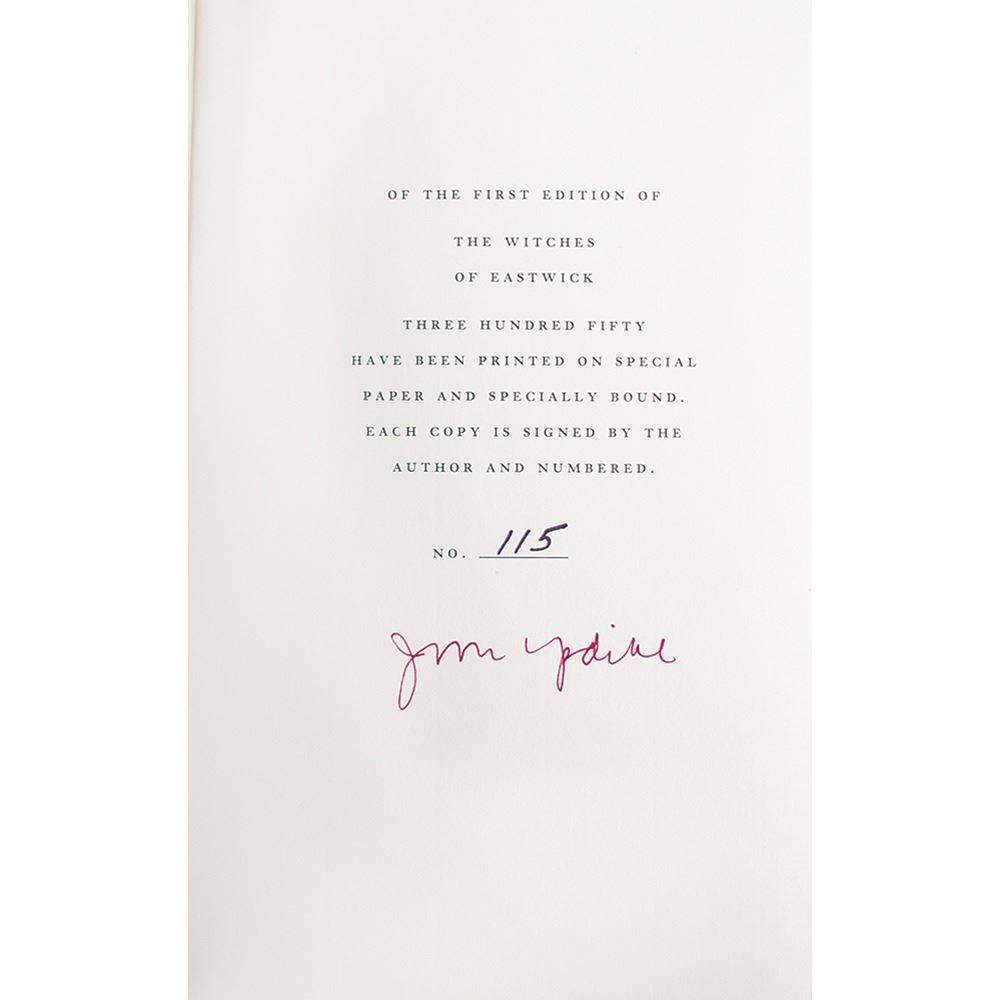 OF THE FIRST EDITION OF
THE WITCHES
OF EASTWICK
THREE HUNDRED FIFTY
HAVE BEEN PRINTED ON SPECIAL
PAPER AND SPECIALLY BOUND.
EACH COPY IS SIGNED BY THE
AUTHOR AND NUMBERED.
NO. 115
John Updike